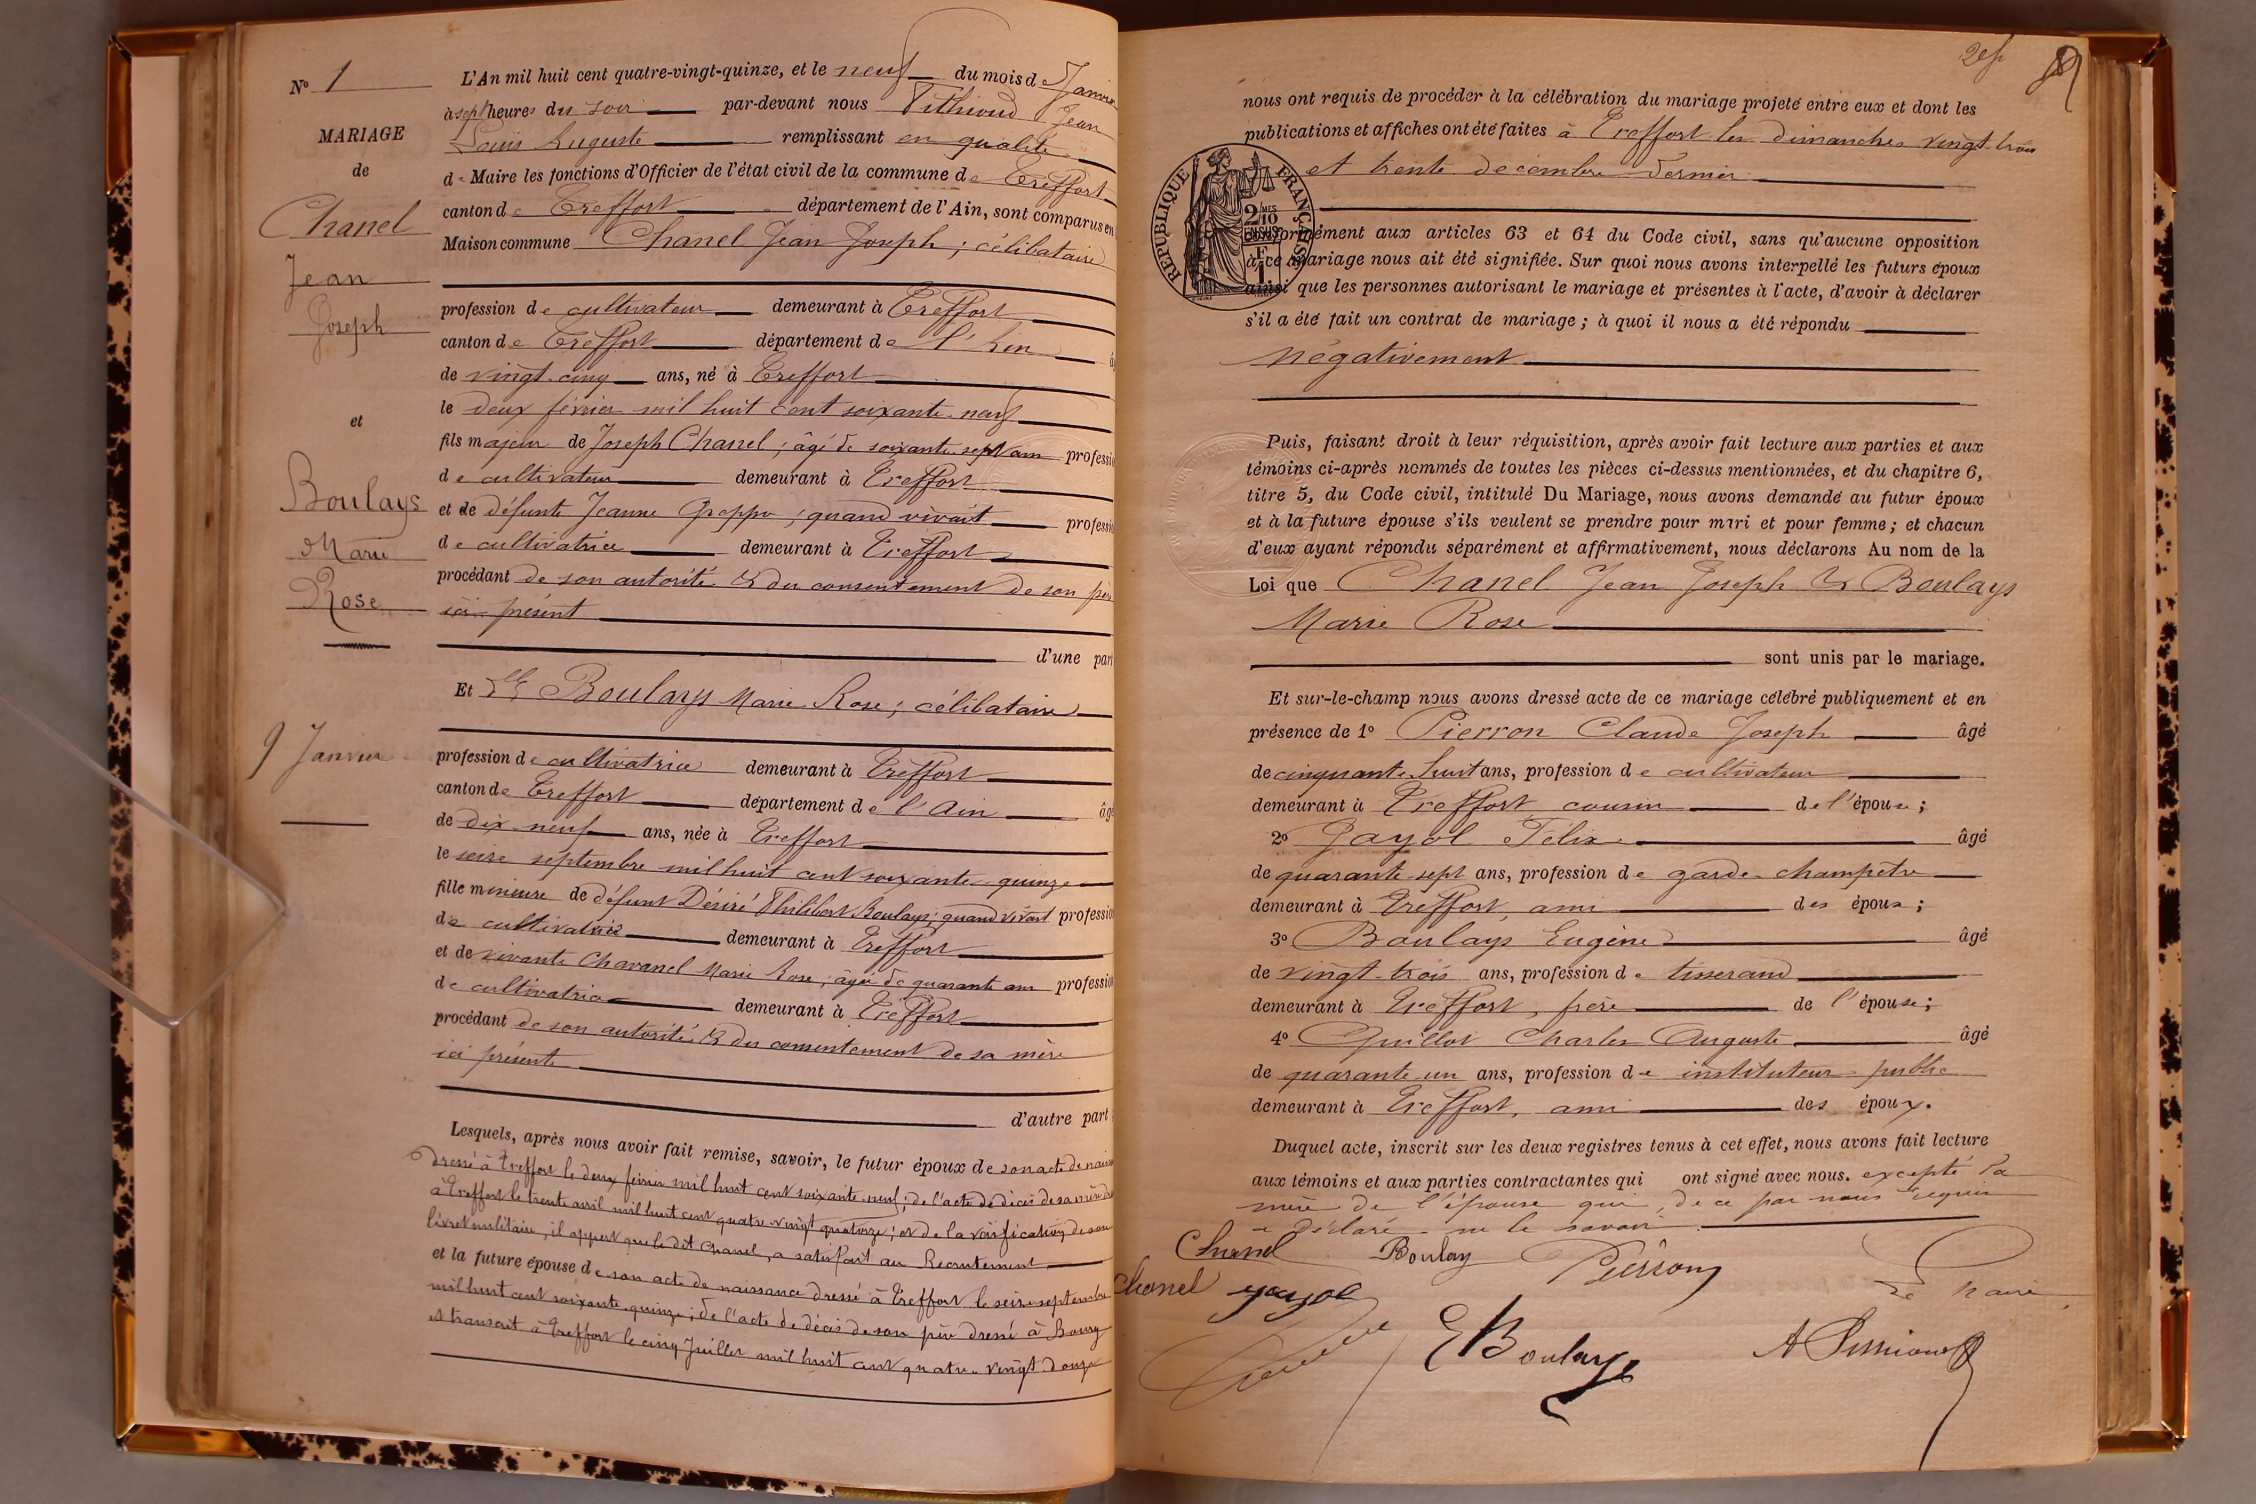 N° 1
MARIAGE
de
Chanel
Jean
Joseph
et
Boulays
Marie
Rose
9 Janvier
L'An mil huit cent quatre-vingt-quinze, et le neuf du mois de Janvier
à sept heures du soir par-devant nous Pithioud Jean
Louis Auguste remplissant en qualité
de Maire les fonctions d'Officier de l'état civil de la commune de Treffort
canton de Treffort département de l'Ain, sont comparus en
Maison commune Chanel Jean Joseph ; célibataire
profession de cultivateur demeurant à Treffort
canton de Treffort département de l'Ain
de vingt-cinq ans, né à Treffort
le deux février mil huit cent soixante-neuf
fils majeur de Joseph Chanel ; âgé de soixante sept ans professi
de cultivateur demeurant à Treffort
et de défunte Jeanne ; quand vivait professi
de cultivatrice demeurant à Treffort
procédant de son autorité & du consentement de son père
ici présent
d'une part
Et Boulays Marie Rose ; célibataire
profession de cultivatrice demeurant à Treffort
canton de Treffort département de l'Ain âgé
de dix-neuf ans, née à Treffort
le seize septembre mil huit cent soixante-quinze
fille mineure de défunt Désiré Philibert Boulays ; quand vivait profession
de cultivatrice demeurant à Treffort
et de vivante Chavanel Marie Rose ; âgée de quarante ans profession
de cultivatrice demeurant à Treffort
procédant de son autorité & du consentement de sa mère
ici présente
d'autre part ;
Lesquels, après nous avoir fait remise, savoir, le futur époux de son acte de naiss
dressé à Treffort le deux février mil huit cent soixante-neuf ; de l'acte de décès de sa mère
à Treffort le trente avril mil huit cent quatre-vingt quatorze ; et de la vérification de son
livret militaire, il appert que le dit Chanel, a satisfait au Recrutement
et la future épouse de son acte de naissance dressé à Treffort le seize septembre
mil huit cent soixante-quinze ; de l'acte de décès de son père dressé à Bourg
et transcrit à Treffort le cinq Juillet mil huit cent quatre-vingt douze
nous ont requis de procéder à la célébration du mariage projeté entre eux et dont les
publications et affiches ont été faites à Treffort les dimanches vingt-trois
et trente décembre dernier
RÉPUBLIQUE FRANÇAISE
conformément aux articles 63 et 64 du Code civil, sans qu'aucune opposition
à ce mariage nous ait été signifiée. Sur quoi nous avons interpellé les futurs époux
ainsi que les personnes autorisant le mariage et présentes à l'acte, d'avoir à déclarer
s'il a été fait un contrat de mariage ; à quoi il nous a été répondu
négativement
Puis, faisant droit à leur réquisition, après avoir fait lecture aux parties et aux
témoins ci-après nommés de toutes les pièces ci-dessus mentionnées, et du chapitre 6,
titre 5, du Code civil, intitulé Du Mariage, nous avons demandé au futur époux
et à la future épouse s'ils veulent se prendre pour mari et pour femme ; et chacun
d'eux ayant répondu séparément et affirmativement, nous déclarons Au nom de la
Loi que Chanel Jean Joseph & Boulays
Marie Rose
sont unis par le mariage.
Et sur-le-champ nous avons dressé acte de ce mariage célébré publiquement et en
présence de 1° Pierron Claude Joseph âgé
de cinquante-huit ans, profession de cultivateur
demeurant à Treffort cousin de l'épouse ;
2° Gayol Félix âgé
de quarante-sept ans, profession de garde-champêtre
demeurant à Treffort, ami des époux ;
3° Boulays Eugène âgé
de vingt-trois ans, profession de tisserand
demeurant à Treffort, frère de l'épouse ;
4° Guillot Charles Auguste âgé
de quarante-un ans, profession de instituteur public
demeurant à Treffort, ami des époux.
Duquel acte, inscrit sur les deux registres tenus à cet effet, nous avons fait lecture
aux témoins et aux parties contractantes qui ont signé avec nous. excepté la
mère de l'épouse qui, de ce par nous requise
a déclaré ne le savoir.
Chanel Boulay Pierron
Chanel gayol Le Maire,
E Boulays